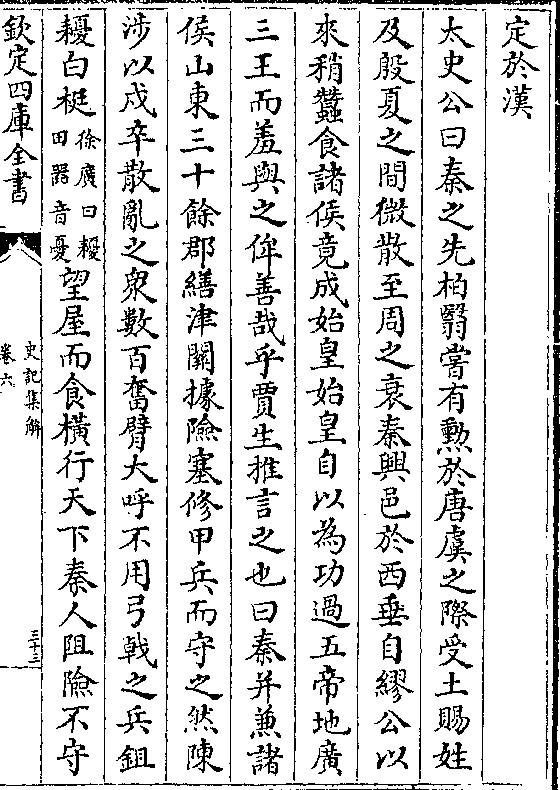 定於漢
太史公曰秦之先柏翳嘗有勲於唐虞之際受土賜姓
及殷夏之間微散至周之衰秦興邑於西垂自繆公以
來稍蠶食諸侯竟成始皇始皇自以為功過五帝地廣
三王而羞與之侔善哉乎賈生推言之也曰秦并兼諸
侯山東三十餘郡繕津關據險塞修甲兵而守之然陳
涉以戍卒散亂之衆數百奮臂大呼不用弓㦸之兵鉏
耰白梃徐廣曰耰田器音憂望屋而食橫行天下秦人阻險不守
欽定四庫全書
史記集解
卷六
三十三